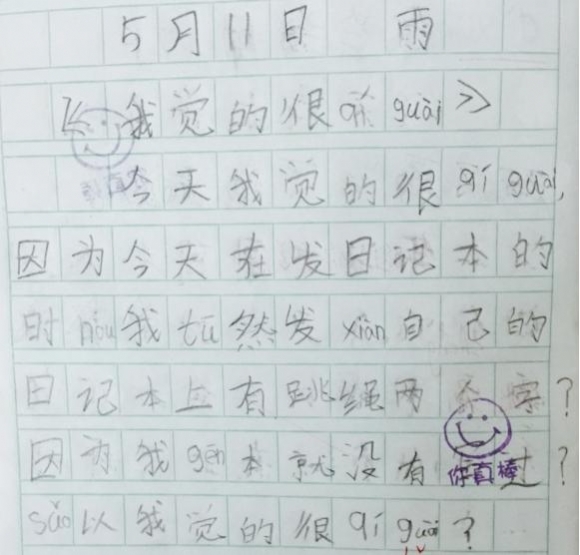 5月11日 雨
《我觉的很qí guài》
今天我觉的很qí guài,
因为今天在发日记本的
时hòu我tū然发xiàn自己的
日记本上有跳绳两个字?
因为我gēn本就没有过?
suǒ以我觉的很qí guài?
你真棒